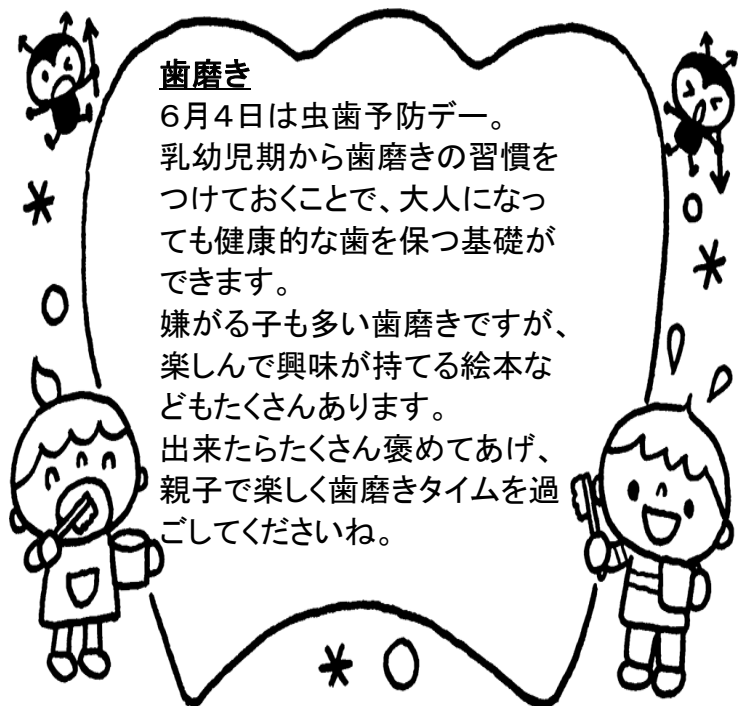 歯磨き
６月４日は虫歯予防デー。
乳幼児期から歯磨きの習慣を
つけておくことで、大人になっ
ても健康的な歯を保つ基礎が
できます。
嫌がる子も多い歯磨きですが、
楽しんで興味が持てる絵本な
どもたくさんあります。
出来たらたくさん褒めてあげ、
親子で楽しく歯磨きタイムを過
ごしてくださいね。